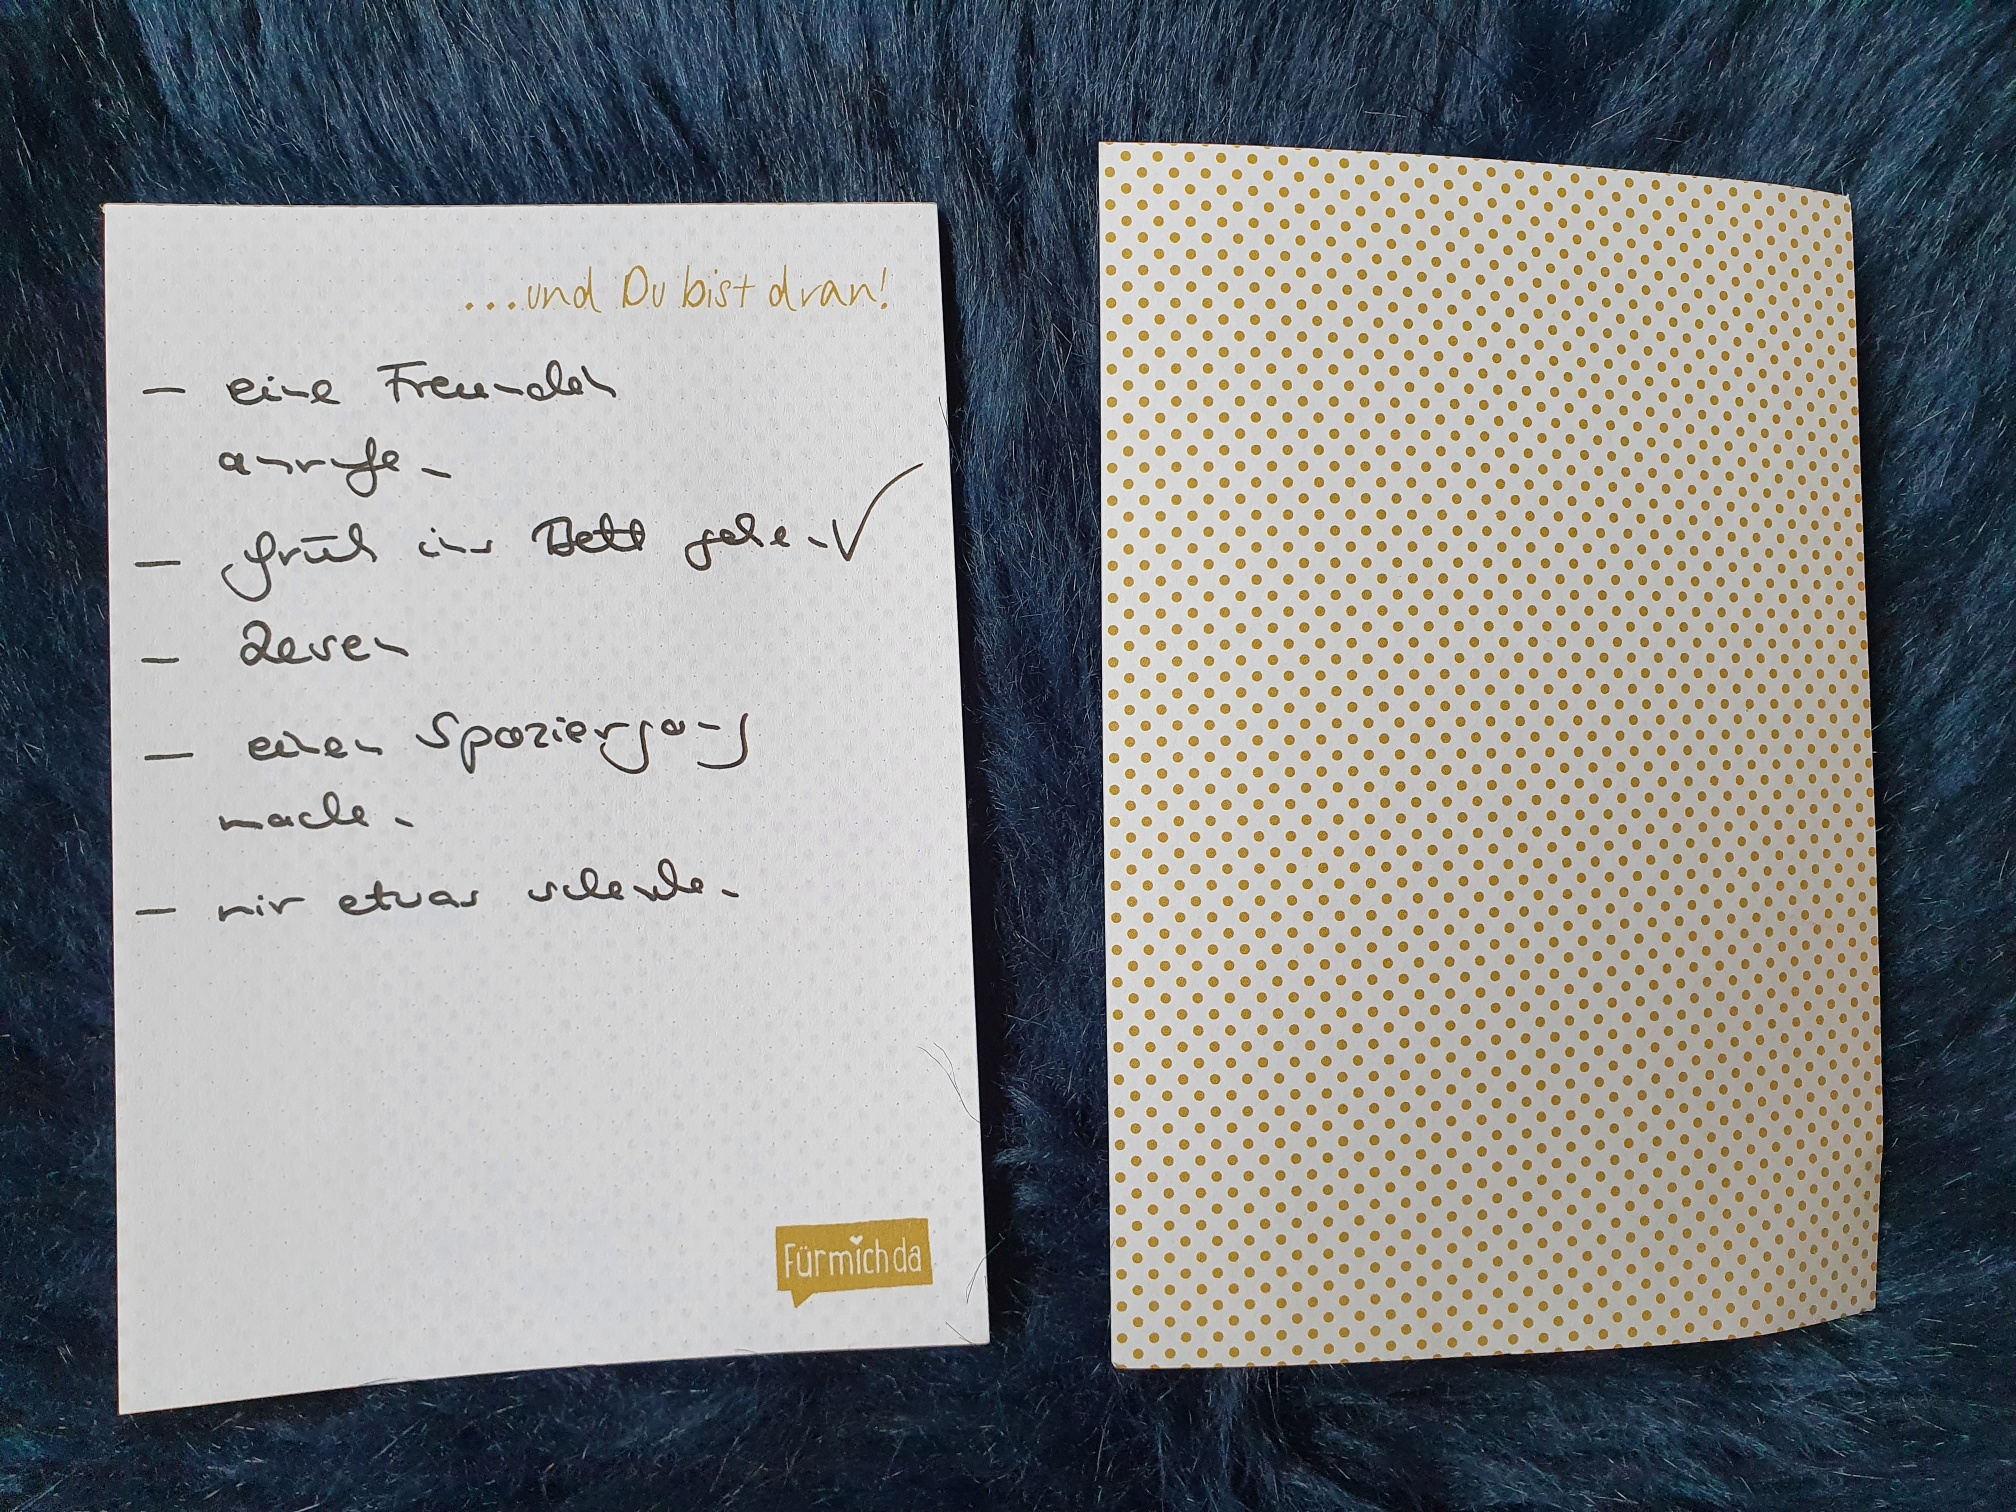 ...und Du bist dran!
- eine Freundin
anrufen
- früh ins Bett gehen ✓
- Lesen
- einen Spaziergang
machen
- mir etwas schenken
Für mich da